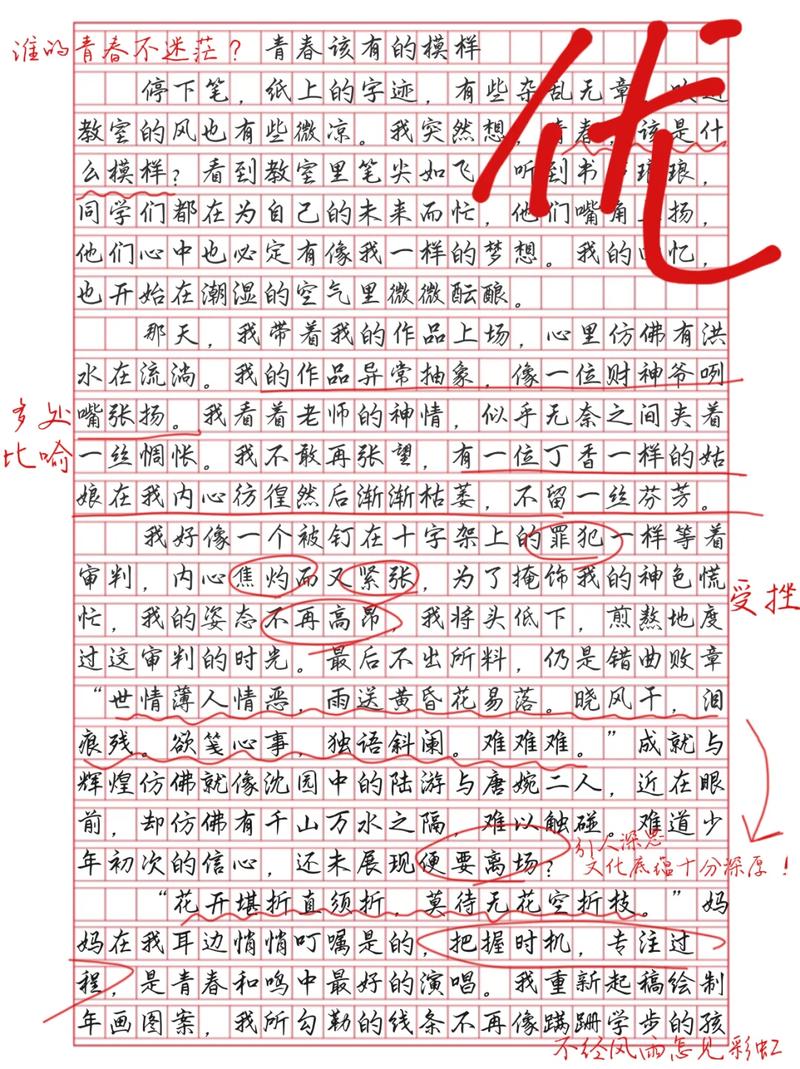 谁的青春不迷茫？ 青春该有的模样
停下笔，纸上的字迹，有些杂乱无章
教室的风也有些微凉。我突然想，青春，该是什
么模样？看到教室里笔尖如飞，听到书声琅琅，
同学们都在为自己的未来而忙，他们嘴角上扬，
他们心中也必定有像我一样的梦想。我的回忆，
也开始在潮湿的空气里微微酝酿。
那天，我带着我的作品上场，心里仿佛有洪
水在流淌。我的作品异常抽象，像一位财神爷咧
多处比喻
嘴张扬。我看着老师的神情，似乎无奈之间夹着
一丝惆怅。我不敢再张望，有一位丁香一样的姑
娘在我内心彷徨然后渐渐枯萎，不留一丝芬芳。
我好像一个被钉在十字架上的罪犯一样等着
审判，内心焦灼而又紧张，为了掩饰我的神色慌
受挫
忙，我的姿态不再高昂，我将头低下，煎熬地度
过这审判的时光。最后不出所料，仍是错曲败章
“世情薄人情恶，雨送黄昏花易落。晓风干，泪
痕残。欲笺心事，独语斜阑。难难难。”成就与
辉煌仿佛就像沈园中的陆游与唐婉二人，近在眼
前，却仿佛有千山万水之隔，难以触碰。难道少
年初次的信心，还未展现便要离场？
引人深思
文化底蕴十分深厚！
“花开堪折直须折，莫待无花空折枝。”妈
妈在我耳边悄悄叮嘱是的，把握时机，专注过
程，是青春和鸣中最好的演唱。我重新起稿绘制
年画图案，我所勾勒的线条不再像蹒跚学步的孩
不经风雨怎见彩虹
优